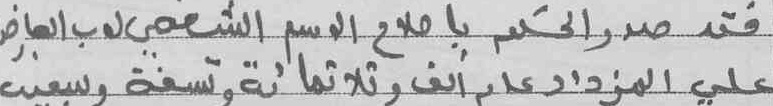 فقد صدر الحكم بإصلاح الاسم الشخصي لأب العارض
علي المزداد عام ألف وثلاثمائة وتسعة وسبعين